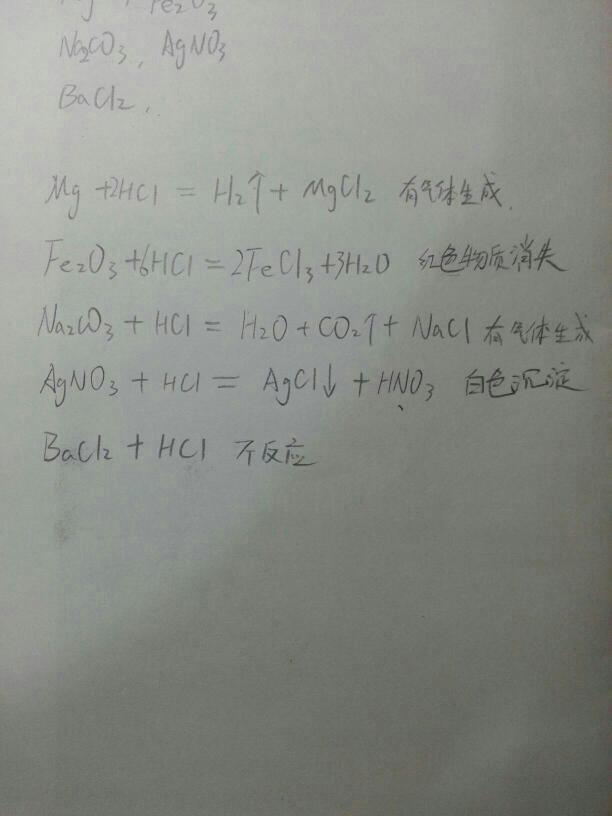 Mg + Fe₂O₃
Na₂CO₃, AgNO₃
BaCl₂,
Mg +2HCl = H₂↑ + MgCl₂ 有气体生成.
Fe₂O₃ +6HCl = 2FeCl₃ +3H₂O 红色物质消失
Na₂CO₃ + HCl = H₂O + CO₂↑ + NaCl 有气体生成
AgNO₃ + HCl = AgCl↓ + HNO₃ 白色沉淀
BaCl₂ + HCl 不反应